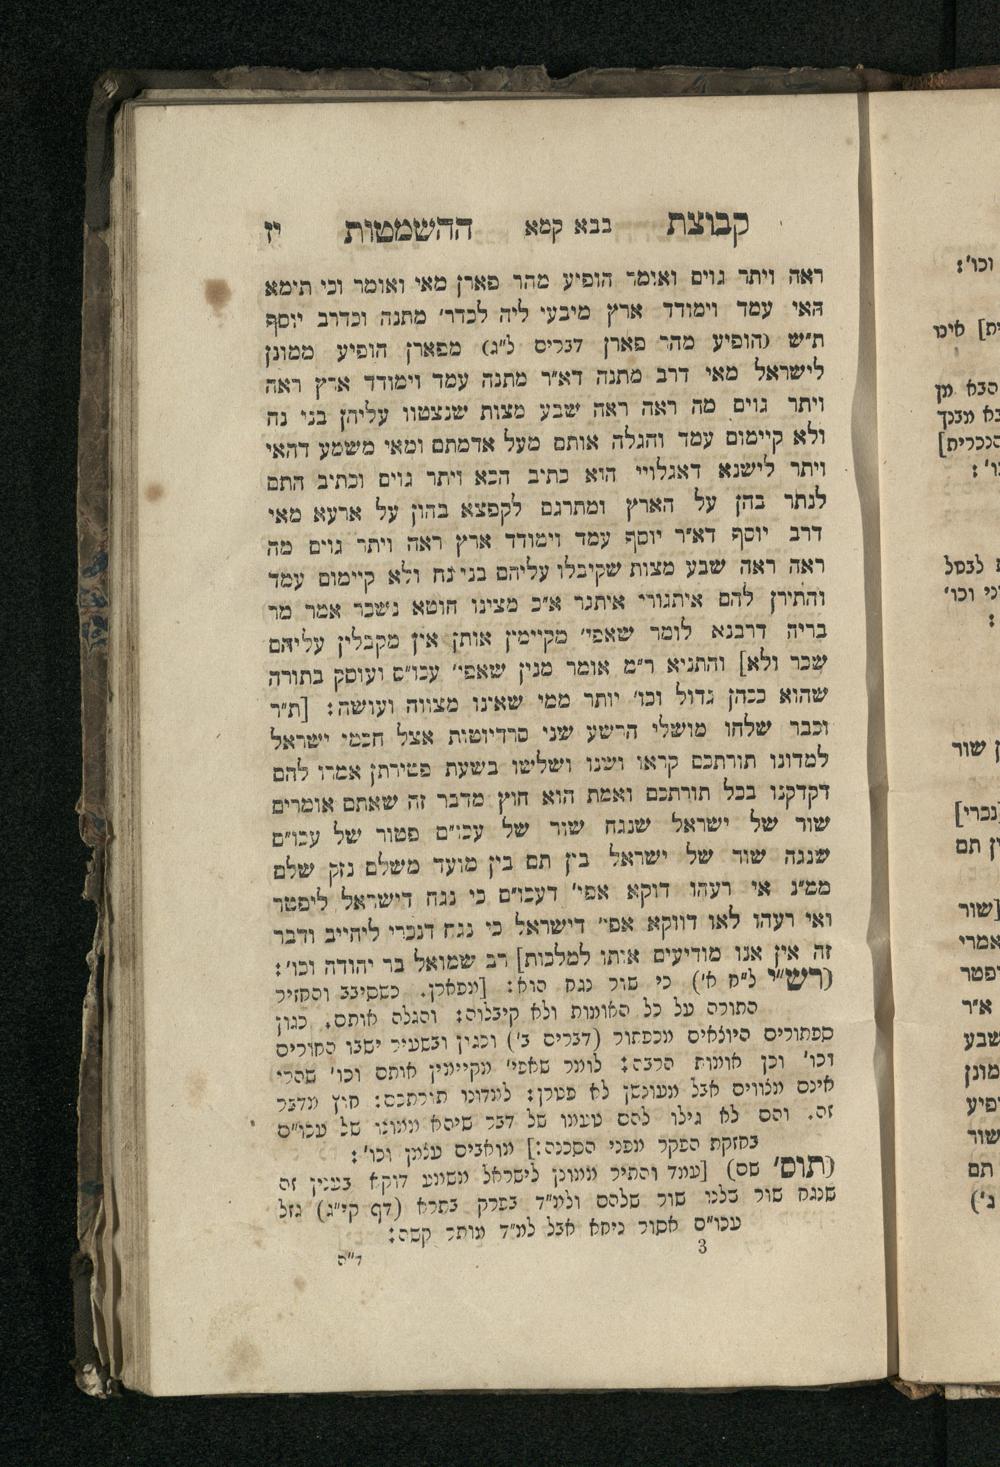 קבוצת בבא קמא ההשמטות יז
ראה ויתר גוים ואומר הופיע מהר פארן מאי ואומר וכי תימא
האי עמד וימודד ארץ מיבעי ליה לכדר׳ מתנה וכדרב יוסף
ת״ש (הופיע מהר פארן דברים ל״ג) מפארן הופיע ממונן
לישראל מאי דרב מתנה דא״ר מתנה עמד וימודד ארץ ראה
ויתר גוים מה ראה ראה שבע מצות שנצטוו עליהן בני נח
ולא קיימום עמד והגלה אותם מעל אדמתם ומאי משמע דהאי
ויתר לישנא דאגלויי הוא כתיב הכא ויתר גוים וכתיב התם
לנתר בהן על הארץ ומתרגם לקפצא בהון על ארעא מאי
דרב יוסף דא״ר יוסף עמד וימודד ארץ ראה ויתר גוים מה
ראה ראה שבע מצות שקיבלו עליהם בני נח ולא קיימום עמד
והתירן להם איתגורי איתגר א״כ מצינו חוטא נשכר אמר מר
בריה דרבנא לומר שאפי׳ מקיימין אותן אין מקבלין עליהם
שכר ולא] והתניא ר״מ אומר מנין שאפי׳ עכו״ם ועוסק בתורה
שהוא ככהן גדול וכו׳ יותר ממי שאינו מצווה ועושה: [ת״ר
וכבר שלחו מושלי הרשע שני סרדיוטות אצל חכמי ישראל
למדונו תורתכם קראו ושנו ושלישו בשעת פטירתן אמרו להם
דקדקנו בכל תורתכם ואמת הוא חוץ מדבר זה שאתם אומרים
שור של ישראל שנגח שור של עכו״ם פטור של עכו״ם
שנגח שור של ישראל בין תם בין מועד משלם נזק שלם
ממ״נ אי רעהו דוקא אפי׳ דעכו״ם כי נגח דישראל ליפטר
ואי רעהו לאו דווקא אפי׳ דישראל כי נגח דנכרי ליחייב ודבר
זה אין אנו מודיעים אותו למלכות] רב שמואל בר יהודה וכו׳:
(רש״י ל״ח א׳) כי שור נגח הוא: [מפארן. כשסיבב והחזיר
התורה על כל האומות ולא קיבלוה: והגלה אותם. כגון
כפתורים היוצאים מכפתור (דברים ב׳) וכגון ובשעיר ישבו החורים
וכו׳ וכן אומות הרבה: לומר שאפי׳ מקיימין אותם וכו׳ שהרי
אינם מצווים אבל מעונשן לא פטרן: למדונו תורתכם: חוץ מדבר
זה. והם לא גילו להם טעמו של דבר שיהא ממונו של עכו״ם
בחזקת הפקר מפני הסכנה:] מואבים עצמן וכו׳:
(תוס׳ שם) [עמד והתיר ממונן לישראל משמע דוקא בענין זה
שנגח שור שלנו שור שלהם ולמ״ד בפרק בתרא (דף קי״ג) גזל
עכו״ם אסור ניחא אבל למ״ד מותר קשה:
3 ד״ה
וכו׳:
אינו
הבא מן
הנכרים]
לבסל
וכו׳
:
שור
[נכרי]
תם
[שור
אמרי
א״ר
שבע
שור
תם